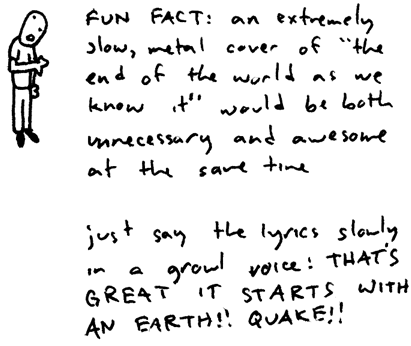 FUN FACT: an extremely
slow, metal cover of "the
end of the world as we
know it" would be both
unnecessary and awesome
at the same time
just say the lyrics slowly
in a growl voice: THAT'S
GREAT IT STARTS WITH
AN EARTH!! QUAKE!!